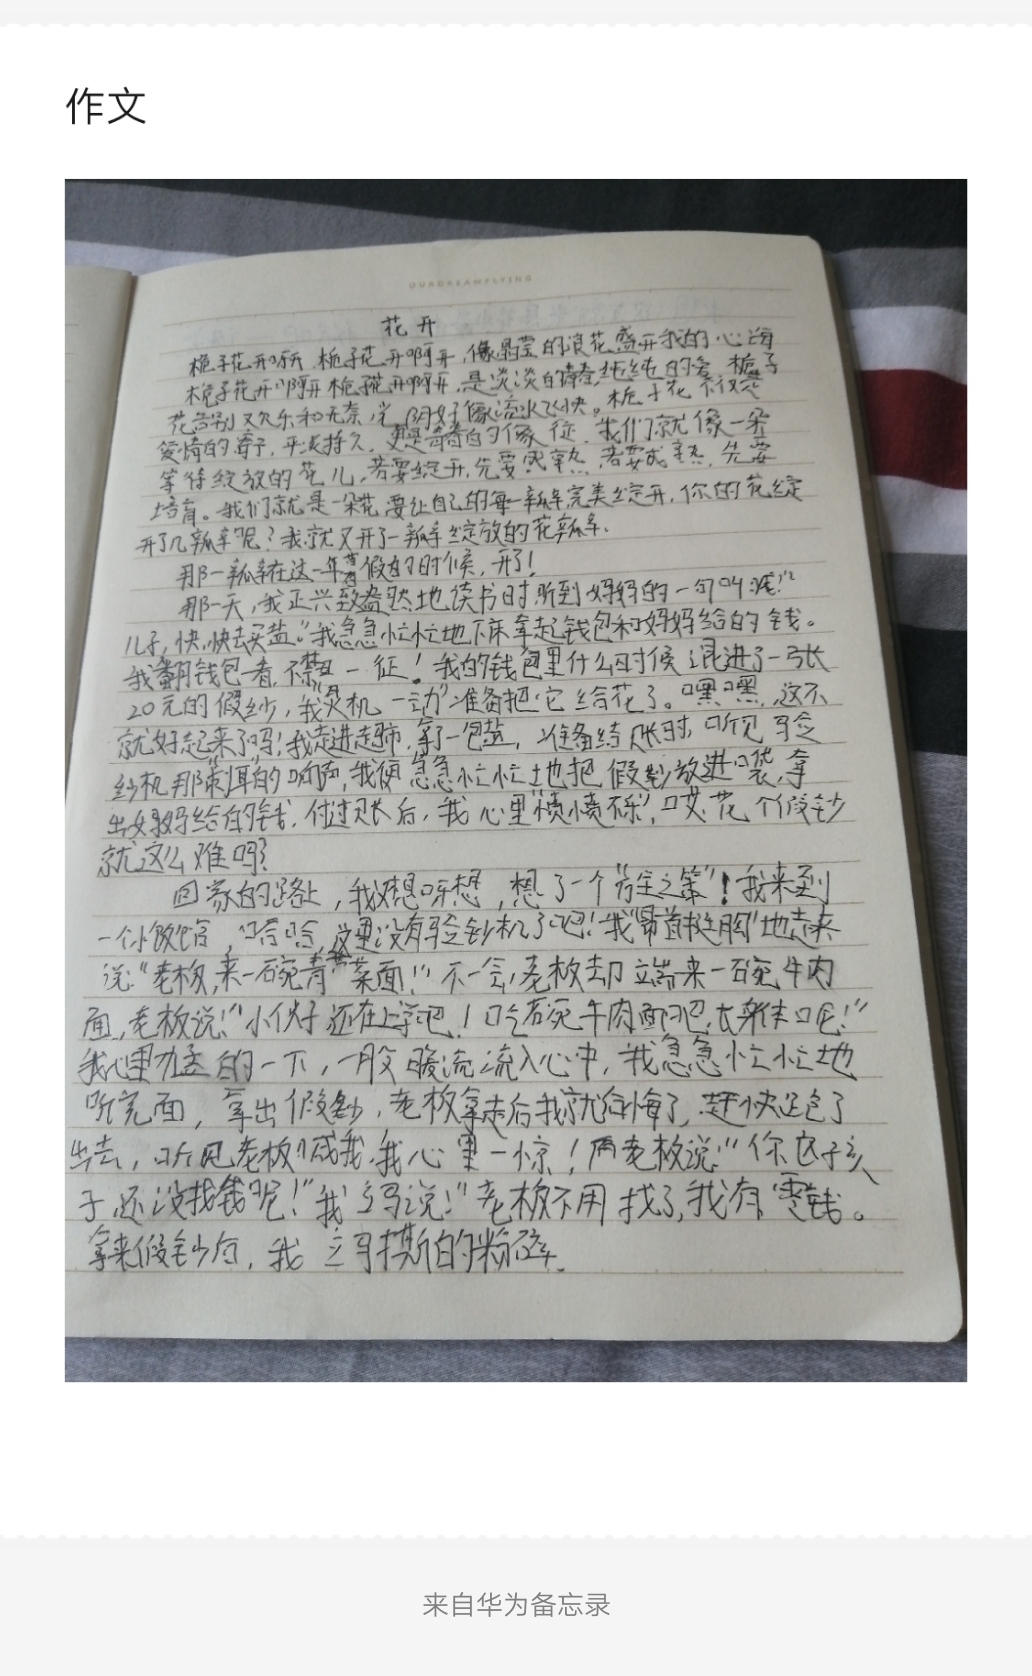 作文
OURDREAMFLYING
花开
栀子花开啊开,栀子花开啊开,像晶莹的浪花盛开我的心海
栀子花开啊开栀子花开啊开,是淡淡的青春,纯纯的爱,栀子
花告别又欢乐和无奈,光阴好像流水飞快。栀子花不仅是
爱情的寄予,平淡持久,更是青春的像征,我们就像一朵
等待绽放的花儿,若要绽开,先要成熟,若要成熟,先要
培育。我们就是一朵花,要让自己的每一瓣完美绽开,你的花绽
开了几瓣呢?我就又开了一瓣绽放的花瓣。
那一瓣在这一年暑假的时候,开了!
那一天,我正兴致盎然地读书时,听到妈妈的一句叫喊:“
儿子,快,快去买盐。”我急急忙忙地下床拿起钱包和妈妈给的钱。
我翻钱包一看,不禁一征!我的钱包里什么时候混进了一张
20元的假钞,我“灵机一动”准备把它给花了。嘿嘿,这不
就好起来了吗!我走进超市,拿了一包盐,准备结账时,听见验
钞机那“刺耳”的响声,我便急急忙忙地把假钞放进口袋,拿
出妈妈给的钱,付过账后,我心里“愤愤不乐”,哎,花个假钞
就这么难吗?
回家的路上,我想呀想,想了一个“万全之策”!我来到
一个小饭馆,哈哈,这里没有验钞机了吧!我“昂首挺胸”地走来
说:“老板,来一碗青菜面!”不一会,老板却端来一碗牛肉
面,老板说:“小伙子还在上学吧!吃碗牛肉面吧,长身体呢!”
我心里猛的一下,一股暖流流入心中,我急急忙忙地
吃完面,拿出假钞,老板拿走后我就后悔了,赶快跑了
出去,听见老板喊我,我心里一惊!老板说:“你这孩
子,还没找钱呢!”我立马说:“老板不用找了,我有零钱。
拿来假钞后,我立马撕的粉碎。
来自华为备忘录